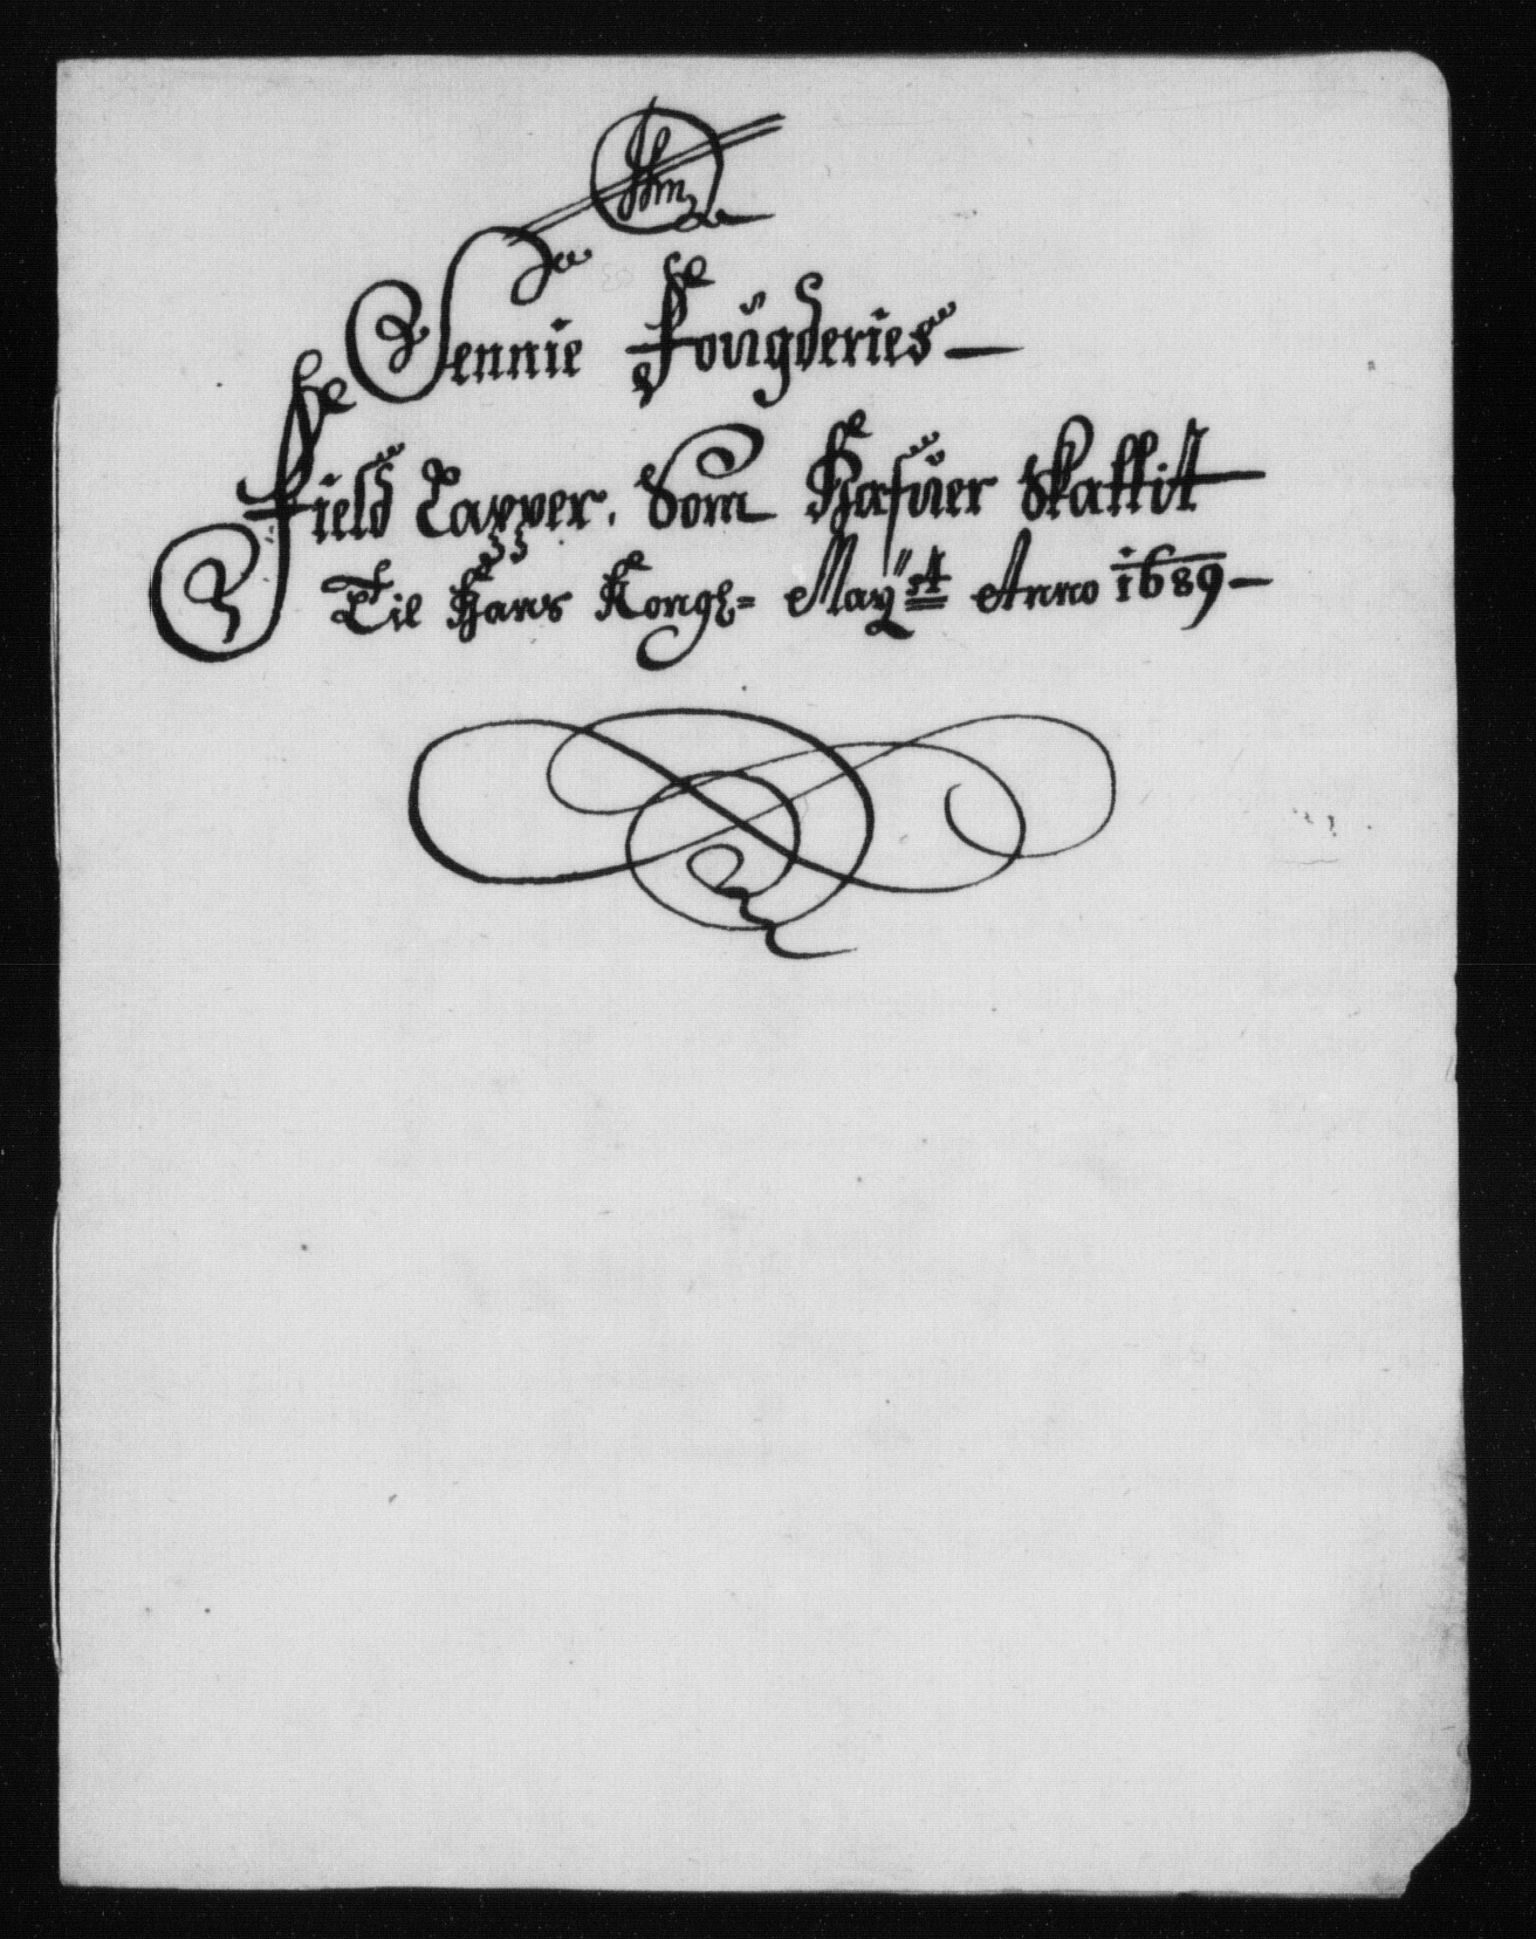 Sennie Fougderies
Field Lapper. Som Hafuer Skattit
Til Hans Kongl= May:st Anno 1689